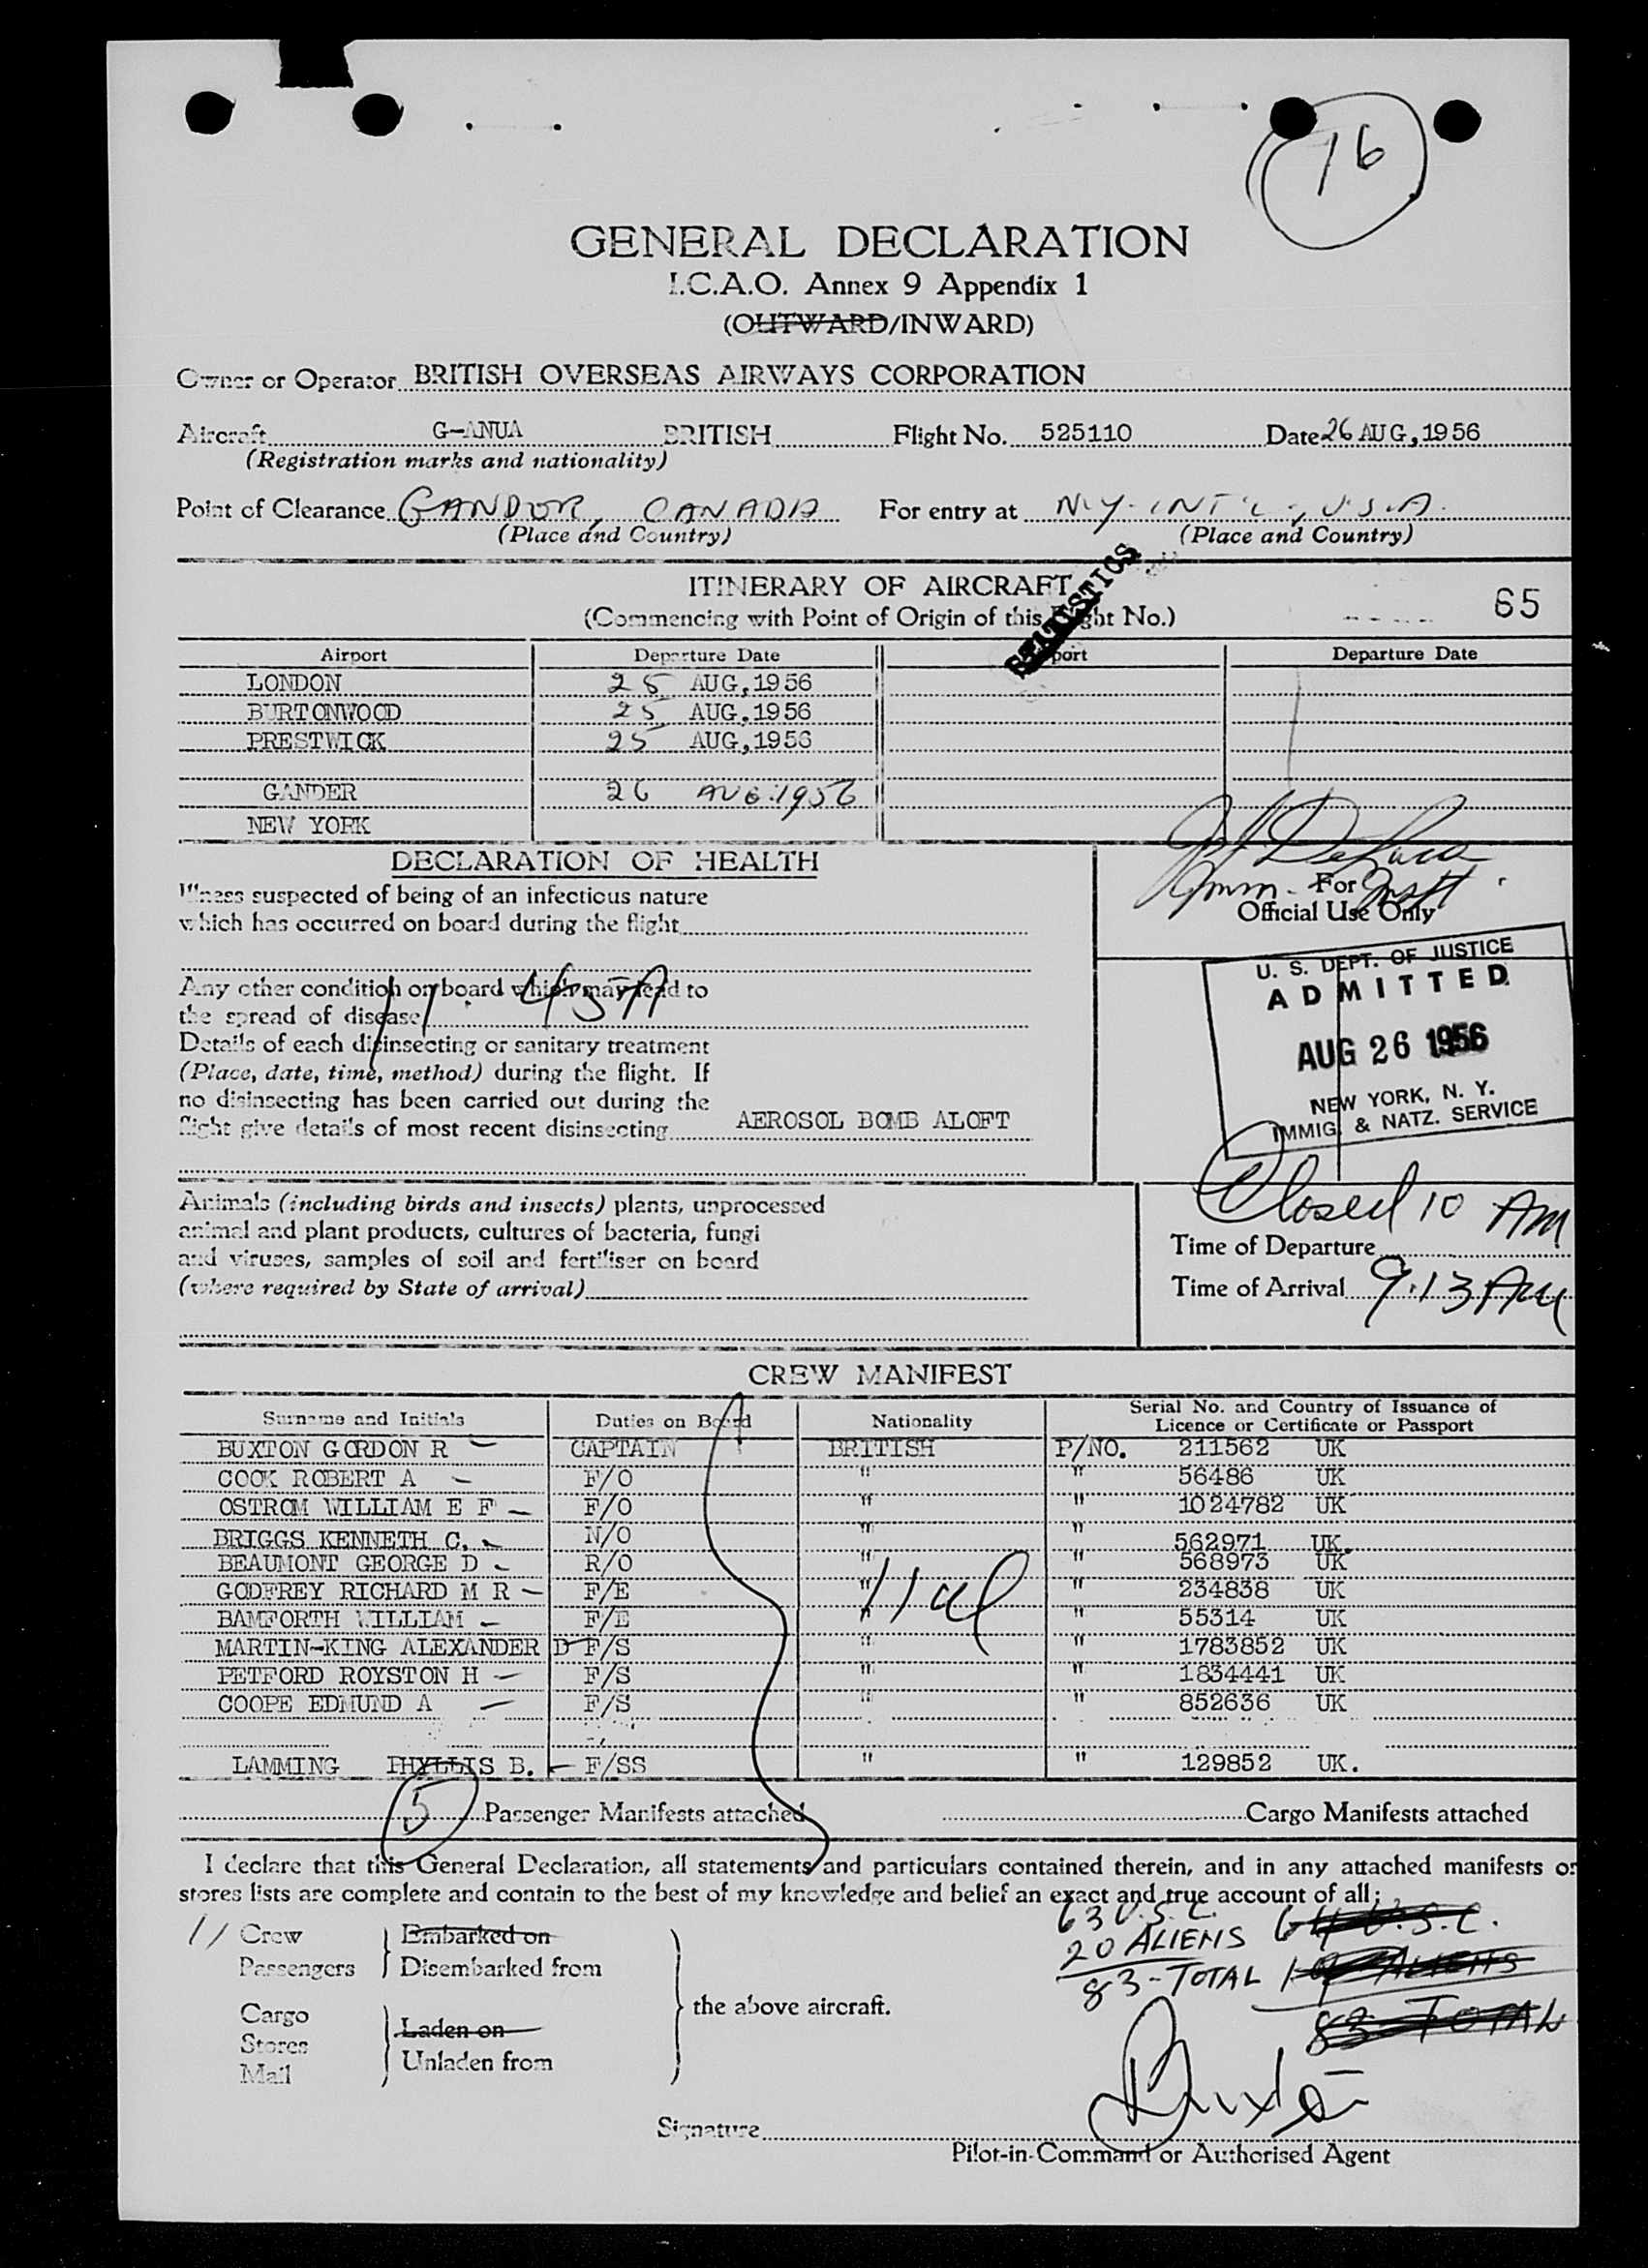 16
GENERAL DECLARATION
I.C.A.O. Annex 9 Appendix 1
(OUTWARD/INWARD)
Owner or Operator BRITISH OVERSEAS AIRWAYS CORPORATION
Aircraft G-ANUA BRITISH Flight No. 525110 Date 26 AUG, 1956
(Registration marks and nationality)
Point of Clearance GANDOR, CANADA For entry at N.Y. INT'L, U.S.A.
(Place and Country) (Place and Country)
STATISTICS
ITINERARY OF AIRCRAFT
(Commencing with Point of Origin of this Flight No.) 65
Airport Departure Date Airport Departure Date
LONDON 25 AUG, 1956
BURTONWOOD 25 AUG, 1956
PRESTWICK 25 AUG, 1956
GANDER 26 AUG. 1956
NEW YORK
DECLARATION OF HEALTH
Illness suspected of being of an infectious nature
which has occurred on board during the flight
Imm. For
Official Use Only
Any other condition on board which may lead to
the spread of disease
Details of each disinsecting or sanitary treatment
(Place, date, time, method) during the flight. If
no disinsecting has been carried out during the
flight give details of most recent disinsecting AEROSOL BOMB ALOFT
U. S. DEPT. OF JUSTICE
ADMITTED
AUG 26 1956
NEW YORK, N. Y.
IMMIG. & NATZ. SERVICE
Animals (including birds and insects) plants, unprocessed
animal and plant products, cultures of bacteria, fungi
and viruses, samples of soil and fertiliser on board
(where required by State of arrival)
Closed 10 AM
Time of Departure
Time of Arrival 9:13 AM
CREW MANIFEST
Surname and Initials Duties on Board Nationality Serial No. and Country of Issuance of
Licence or Certificate or Passport
BUXTON GORDON R CAPTAIN BRITISH P/NO. 211562 UK
COOK ROBERT A F/O " " 56486 UK
OSTROM WILLIAM E F F/O " " 1024782 UK
BRIGGS KENNETH C. N/O " " 562971 UK.
BEAUMONT GEORGE D R/O " " 568973 UK
GODFREY RICHARD M R F/E " " 234838 UK
BAMFORTH WILLIAM F/E " " 55314 UK
MARTIN-KING ALEXANDER D F/S " " 1783852 UK
PETFORD ROYSTON H F/S " " 1834441 UK
COOPE EDMUND A F/S " " 852636 UK
LAMMING PHYLLIS B. F/SS " " 129852 UK.
5 Passenger Manifests attached Cargo Manifests attached
I declare that this General Declaration, all statements and particulars contained therein, and in any attached manifests or
stores lists are complete and contain to the best of my knowledge and belief an exact and true account of all:
11 Crew Embarked on
Passengers Disembarked from
Cargo
Stores Laden on
Mail Unladen from
the above aircraft.
63 U.S.C. 64 U.S.C.
20 ALIENS 19 ALIENS
83-TOTAL 83 TOTAL
Buxton
Signature
Pilot-in-Command or Authorised Agent